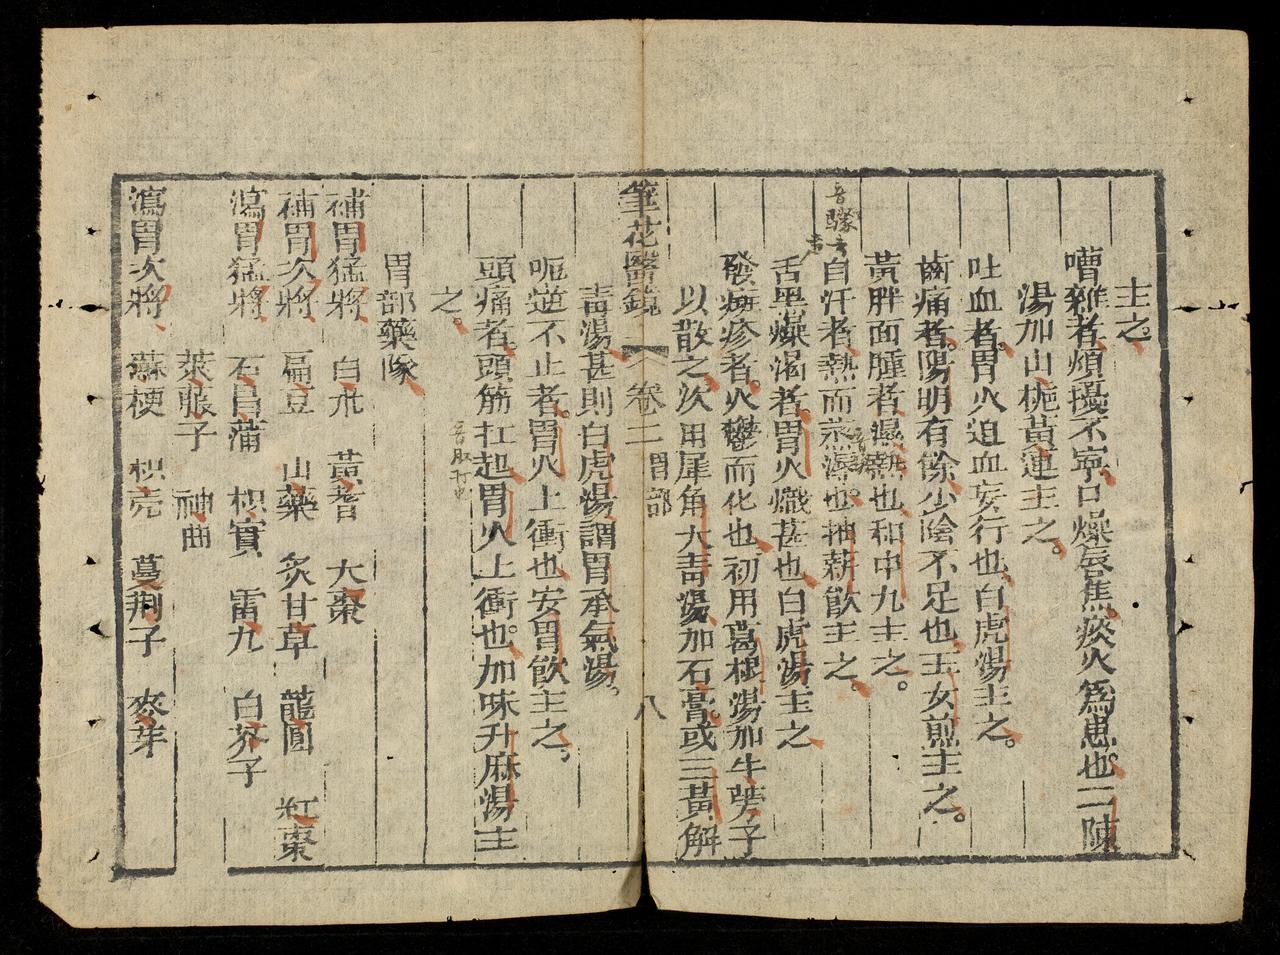 主之。
嘈雜者煩擾不寧口燥唇焦痰火為患也二陳
湯加山梔黃連主之。
吐血者胃火迫血妄行也白虎湯主之。
齒痛者陽明有餘少陰不足也玉女煎主之。
黃胖面腫者濕熱也和中丸主之。
自汗者熱而蒸濕也抽薪飲主之。
舌黑燥渴者胃火熾甚也白虎湯主之
發斑疹者火鬱而化也初用葛根湯加牛蒡子
以散之次用犀角大青湯加石膏或三黃解
筆花醫鏡 卷二 胃部 八
毒湯甚則白虎湯調胃承氣湯。
呃逆不止者胃火上衝也安胃飲主之。
頭痛者頭筋扛起胃火上衝也加味升麻湯主
之。
胃部藥隊
補胃猛將 白朮 黃耆 大棗
補胃次將 扁豆 山藥 炙甘草 龍圓 紅棗
瀉胃猛將 石昌蒲 枳實 雷丸 白芥子
萊菔子 神曲
瀉胃次將 蘇梗 枳壳 蔓荊子 麥芽